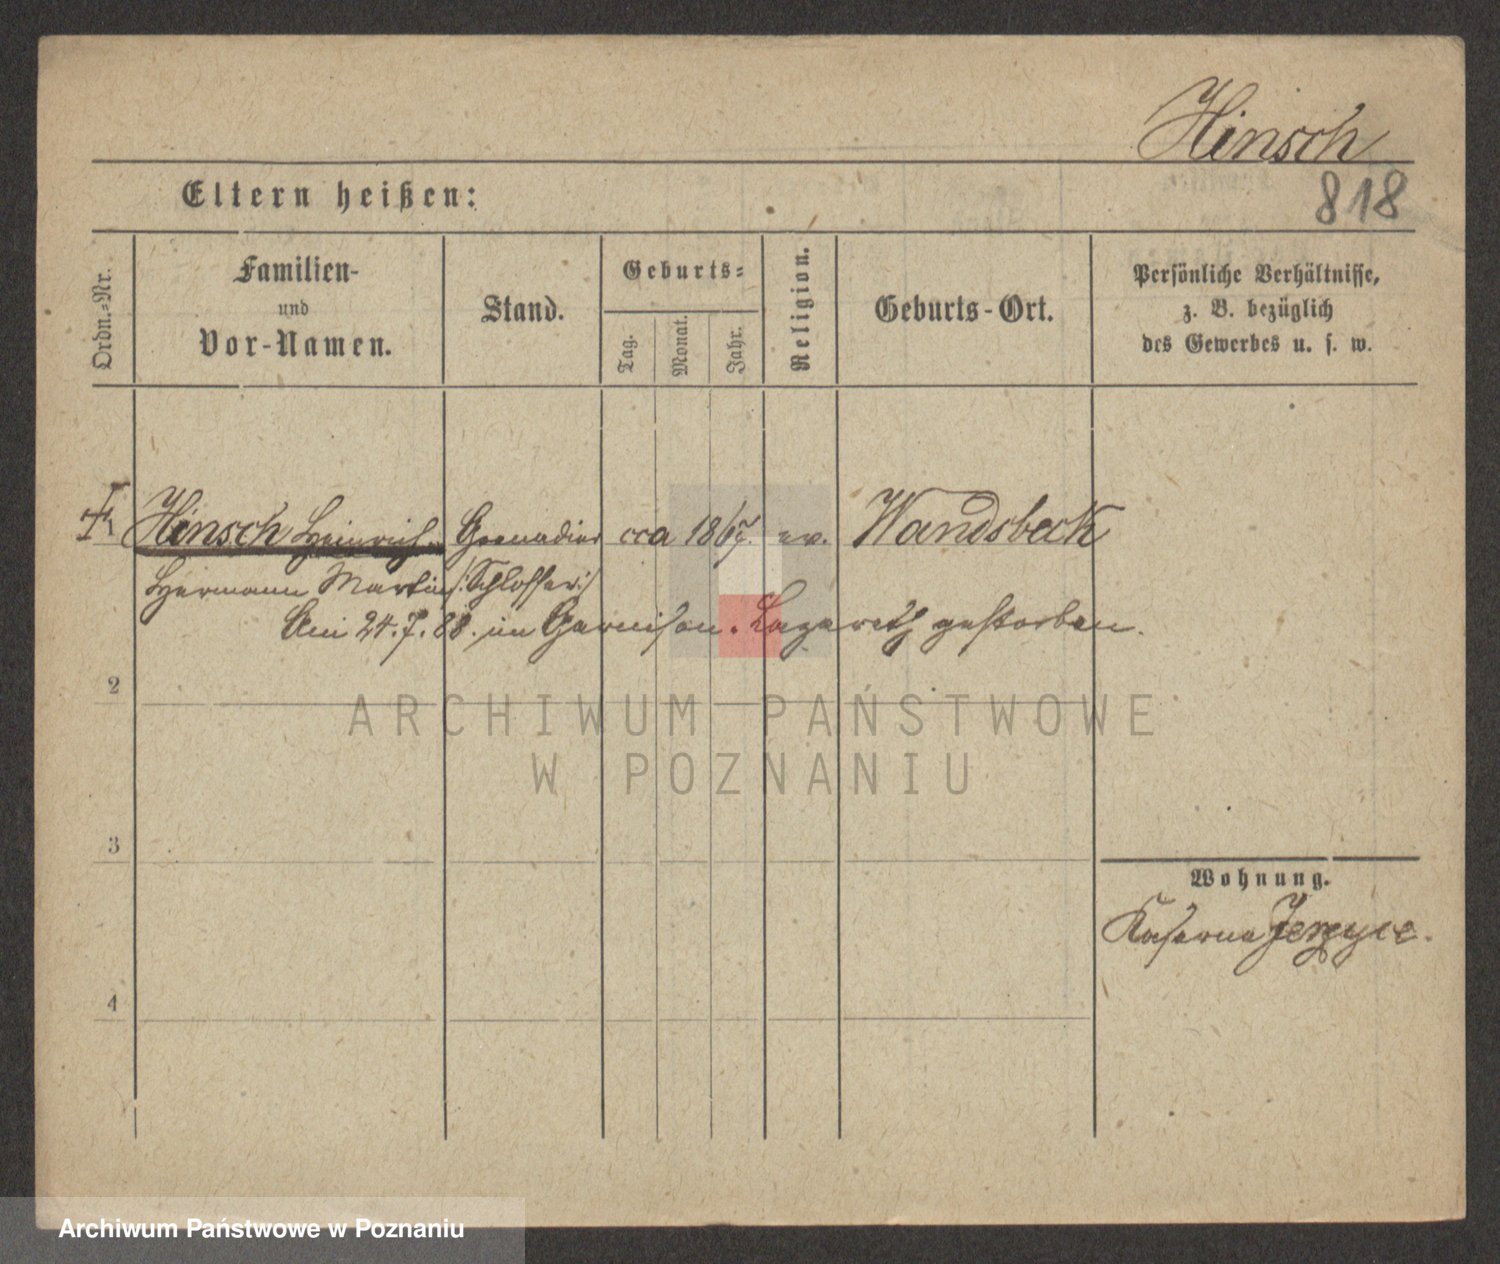 Hinsch
Eltern heißen:
818
Ordn.-Nr.
Familien-
und
Vor-Namen.
Stand.
Geburts-
Tag.
Monat.
Jahr.
Religion.
Geburts-Ort.
Persönliche Verhältnisse,
z. B. bezüglich
des Gewerbes u. s. w.
1 Hinsch Heinrich Grenadier cca 1867. ev. Wandsbeck
Hermann Martin /:Schlosser:/
Am 24.7.88. im Garnison-Lazareth gestorben.
2
ARCHIWUM PAŃSTWOWE
W POZNANIU
3
Wohnung.
Kaserne Jerzyce.
4
Archiwum Państwowe w Poznaniu